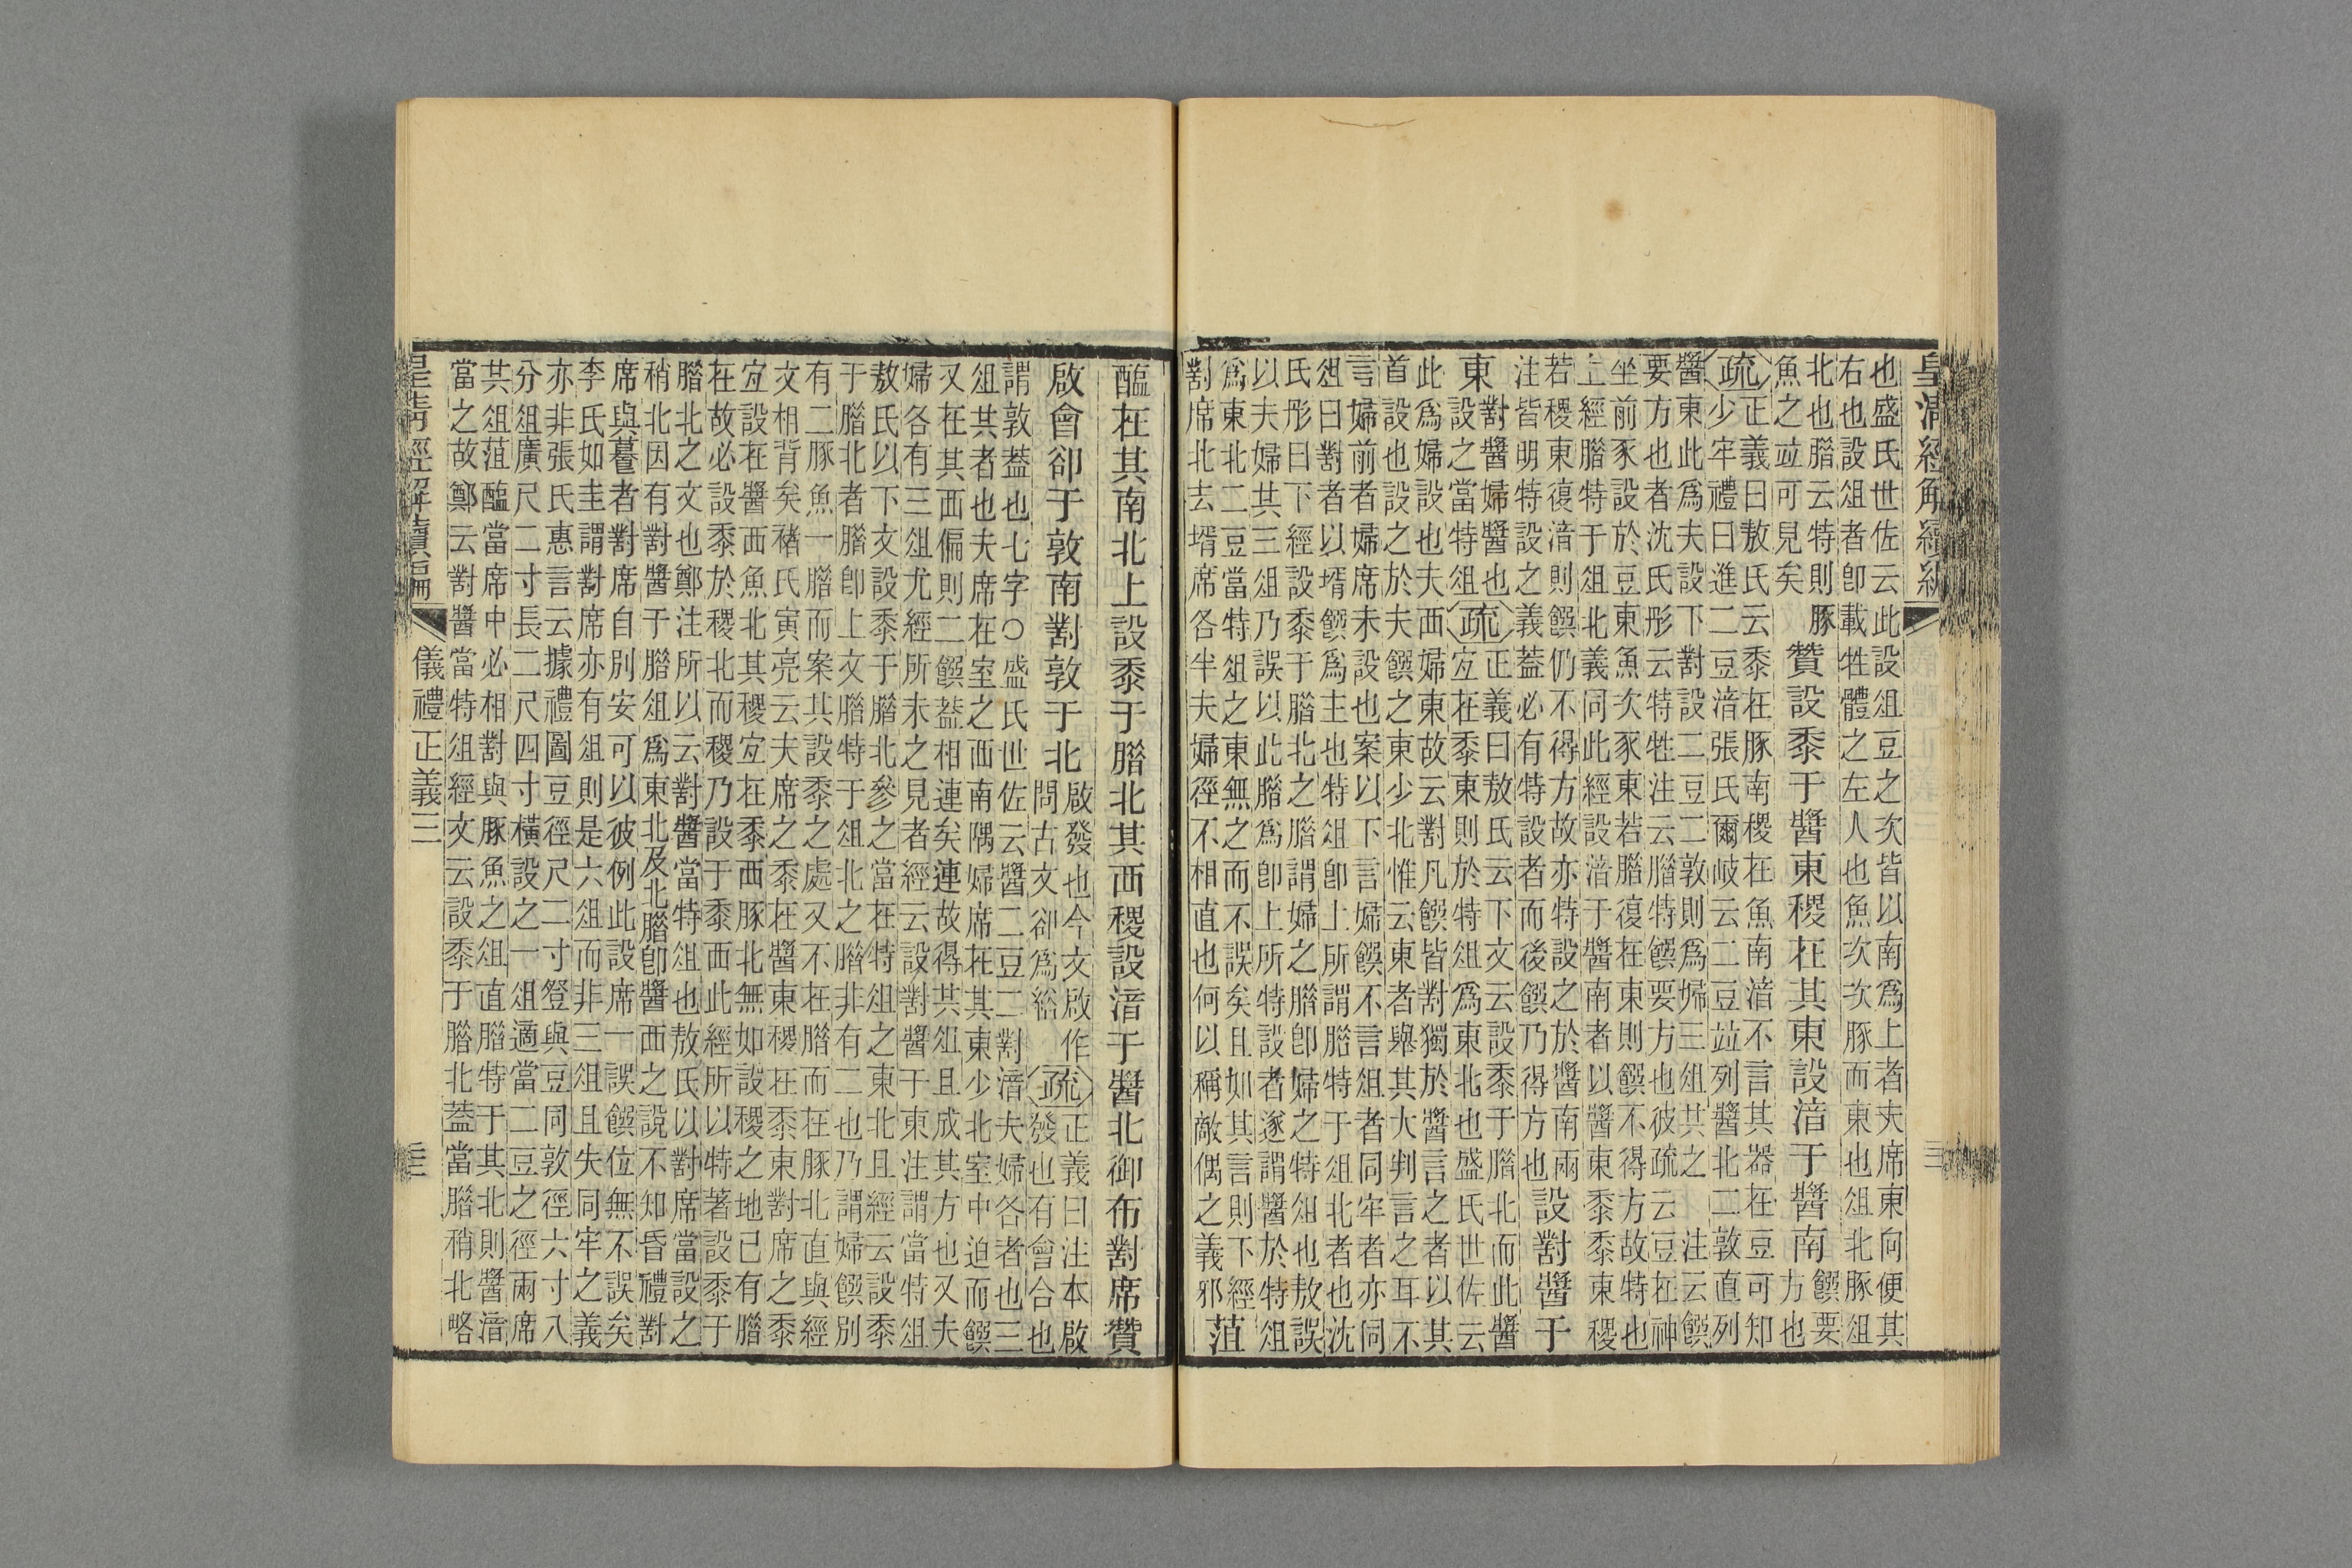 皇清經解續編
也盛氏世佐云此設俎豆之次皆以南爲上者夫席東向便其
右也設俎者卽載牲體之左人也魚次次豚而東也俎北豚俎
北也腊云特則豚
魚之竝可見矣
贊設黍于醬東稷在其東設湆于醬南
饌要
方也
疏
正義曰敖氏云黍在豚南稷在魚南湆不言其器在豆可知
少牢禮曰進二豆湆張氏爾岐云二豆竝列醬北二敦直列
醬東此爲夫設下對設二豆二敦則爲婦三俎其之注云饌
要方也者沈氏彤云特牲注云腊特饌要方也彼疏云豆在神
坐前豕設於豆東魚次豕東若腊復在東則饌不得方故特也
上經腊特于俎北義同此經設湆于醬南者以醬東黍黍東稷
若稷東復湆則饌仍不得方故亦特設之於醬南兩
注皆明特設之義蓋必有特設者而後饌乃得方也
設對醬于
東
對醬婦醬也
設之當特俎
疏
正義曰敖氏云下文云設黍于腊北而此醬
宜在黍東東則於特俎爲東北也盛氏世佐云
此爲婦設也夫西婦東故云對凡饌皆對獨於醬言之者以其
首設也設之於夫饌之東少北惟云東者舉其大判言之耳不
言婦前者婦席未設也案以下言婦饌不言俎者同牢者亦同
俎曰對者以壻饌爲主也特俎卽上所謂腊特于俎北者也沈
氏彤曰下經設黍于腊北之腊謂婦之腊卽婦之特俎也敖誤
以夫婦共三俎乃誤以此腊爲卽上所特設者遂謂醬於特俎
爲東北二豆當特俎之東無之而不誤矣且如其言則下經
對席北去壻席各半夫婦徑不相直也何以稱敵偶之義邪
菹
醢在其南北上設黍于腊北其西稷設湆于醬北御布對席贊
啟會卻于敦南對敦于北
啟發也今文啟作
問古文卻爲綌
疏
正義曰注本啟
發也有會合也
謂敦蓋也七字○盛氏世佐云醬二豆二對湆夫婦各者也三
俎其者也夫席在室之西南隅婦席在其東少北室中迫而饌
又在其西偏則二饌蓋相連矣連故得共俎且成其方也又夫
婦各有三俎尤經所未之見者經云設對醬于東注謂當特俎
敖氏以下文設黍于腊北參之當在特俎之東北且經云設黍
于腊北者腊卽上文腊特于俎北之腊非有二也乃謂婦饌別
有二豚魚一腊而案其設黍之處又不在腊而在豚北直與經
文相背矣褚氏寅亮云夫席之黍在醬東稷在黍東對席之黍
宜設在醬西魚北其稷宜在黍西豚北無如設稷之地已有腊
在故必設黍於稷北而稷乃設于黍西此經所以特著設黍于
腊北之文也鄭注所以云對醬當特俎也敖氏以對席當設之
稍北因有對醬于腊俎爲東北及北腊卽醬西之說不知昏禮對
席與㬪者對席自別安可以彼例此設席一誤饌位無不誤矣
李氏如圭謂對席亦有俎則是六俎而非三俎且失同牢之義
亦非張氏惠言云據禮圖豆徑尺二寸豋與豆同敦徑六寸八
分俎廣尺二寸長二尺四寸橫設之一俎適當二豆之徑兩席
其俎菹醢當席中必相對與豚魚之俎直腊特于其北則醬湆
當之故鄭云對醬當特俎經文云設黍于腊北蓋當腊稍北略
皇清經解續編
儀禮正義三